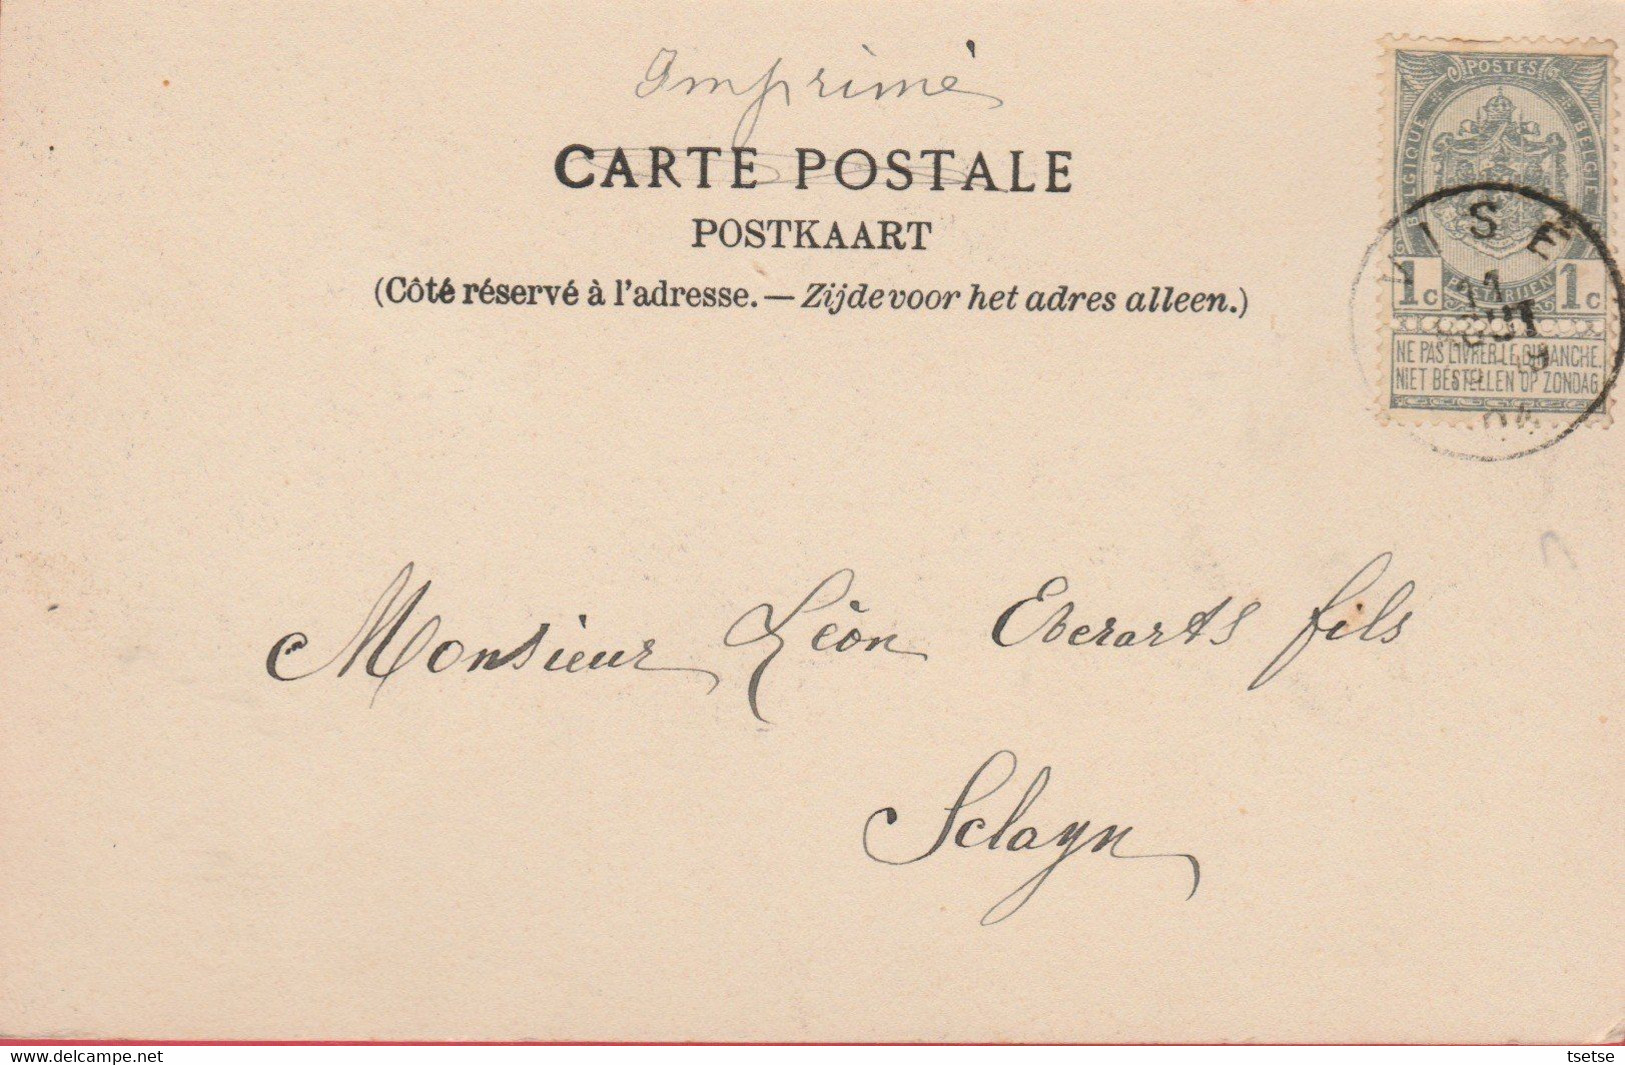 Imprimé
CARTE POSTALE
POSTKAART
(Côté réservé à l'adresse. — Zijde voor het adres alleen.)
POSTES
BELGIQUE
BELGIË
1c POSTERIJEN 1c
NE PAS LIVRER LE DIMANCHE.
NIET BESTELLEN OP ZONDAG.
VISE
11
AOUT
04
Monsieur Lèon Eberarts fils
Sclayn
delcampe.net
tsetse